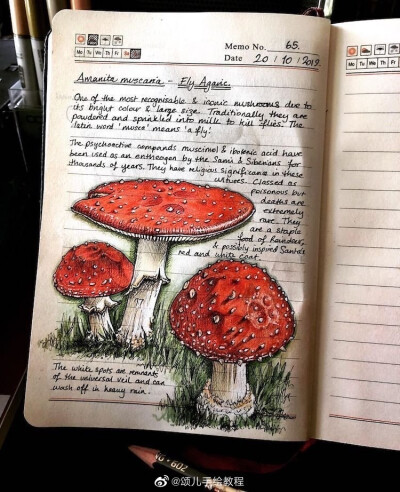 Memo No. 65.
Mo Tu We Th Fr Sa Su
Date 20 / 10 / 2019.
Amanita muscaria - Fly Agaric.
One of the most recognisable & iconic mushrooms due to
its bright colour & large size. Traditionally they are
powdered and sprinkled into milk to kill flies. The
latin word 'musca' means 'a fly'.
The psychoactive compounds muscimol & ibotenic acid have
been used as an entheogen by the Sami & Siberians for
thousands of years. They have religious significance in these
cultures. Classed as
poisonous but
deaths are
extremely
rare. They
are a staple
food of Reindeer,
& possibly inspired Santa's
red and white coat.
The white spots are remnants
of the universal veil and can
wash off in heavy rain.
Mo Tu We Th Fr Sa Su
602
@颂儿手绘教程